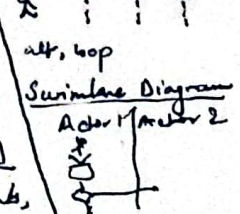 alt, loop
Swimlane Diagram
Actor 1 Actor 2